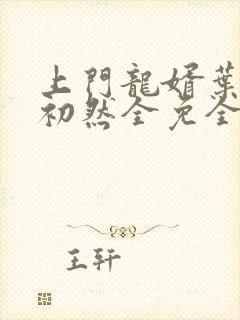 上門龍婿葉
初然全免全
王轩